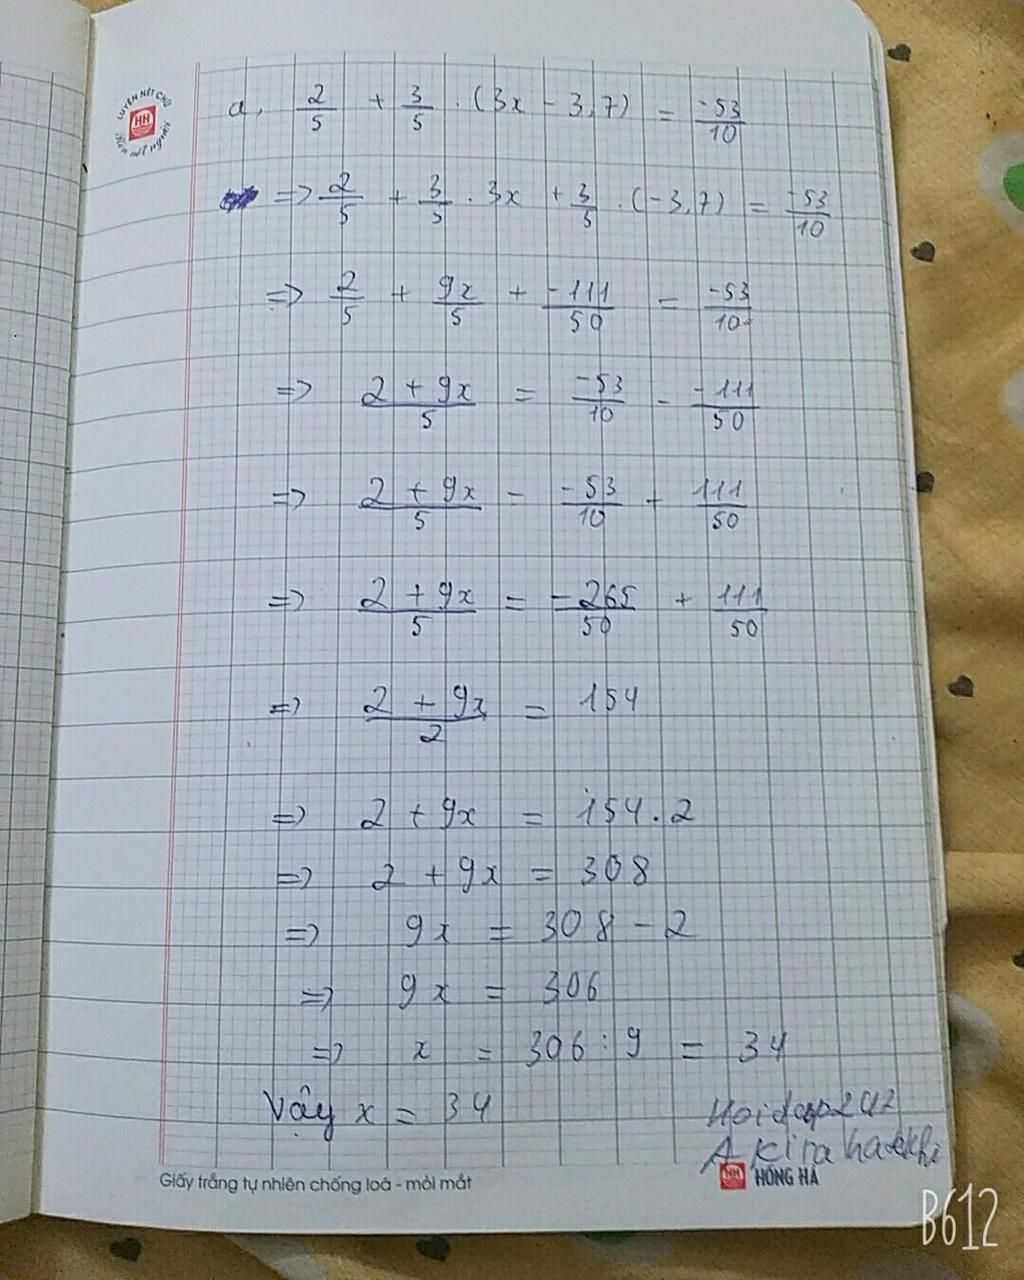 LUYỆN NẾT CHỮ
HH
Rèn nết người
a, 2/5 + 3/5 . (3x - 3,7) = -53/10
=> 2/5 + 3/5 . 3x + 3/5 . (-3,7) = -53/10
=> 2/5 + 9x/5 + -111/50 = -53/10
=> 2 + 9x/5 = -53/10 - -111/50
=> 2 + 9x/5 = -53/10 + 111/50
=> 2 + 9x/5 = -265/50 + 111/50
=> 2 + 9x/2 = 154
=> 2 + 9x = 154.2
=> 2 + 9x = 308
=> 9x = 308 - 2
=> 9x = 306
=> x = 306 : 9 = 34
Vậy x = 34
Hoidap247
Akira
HH HỒNG HÀ
Giấy trắng tự nhiên chống loá - mỏi mắt
B612